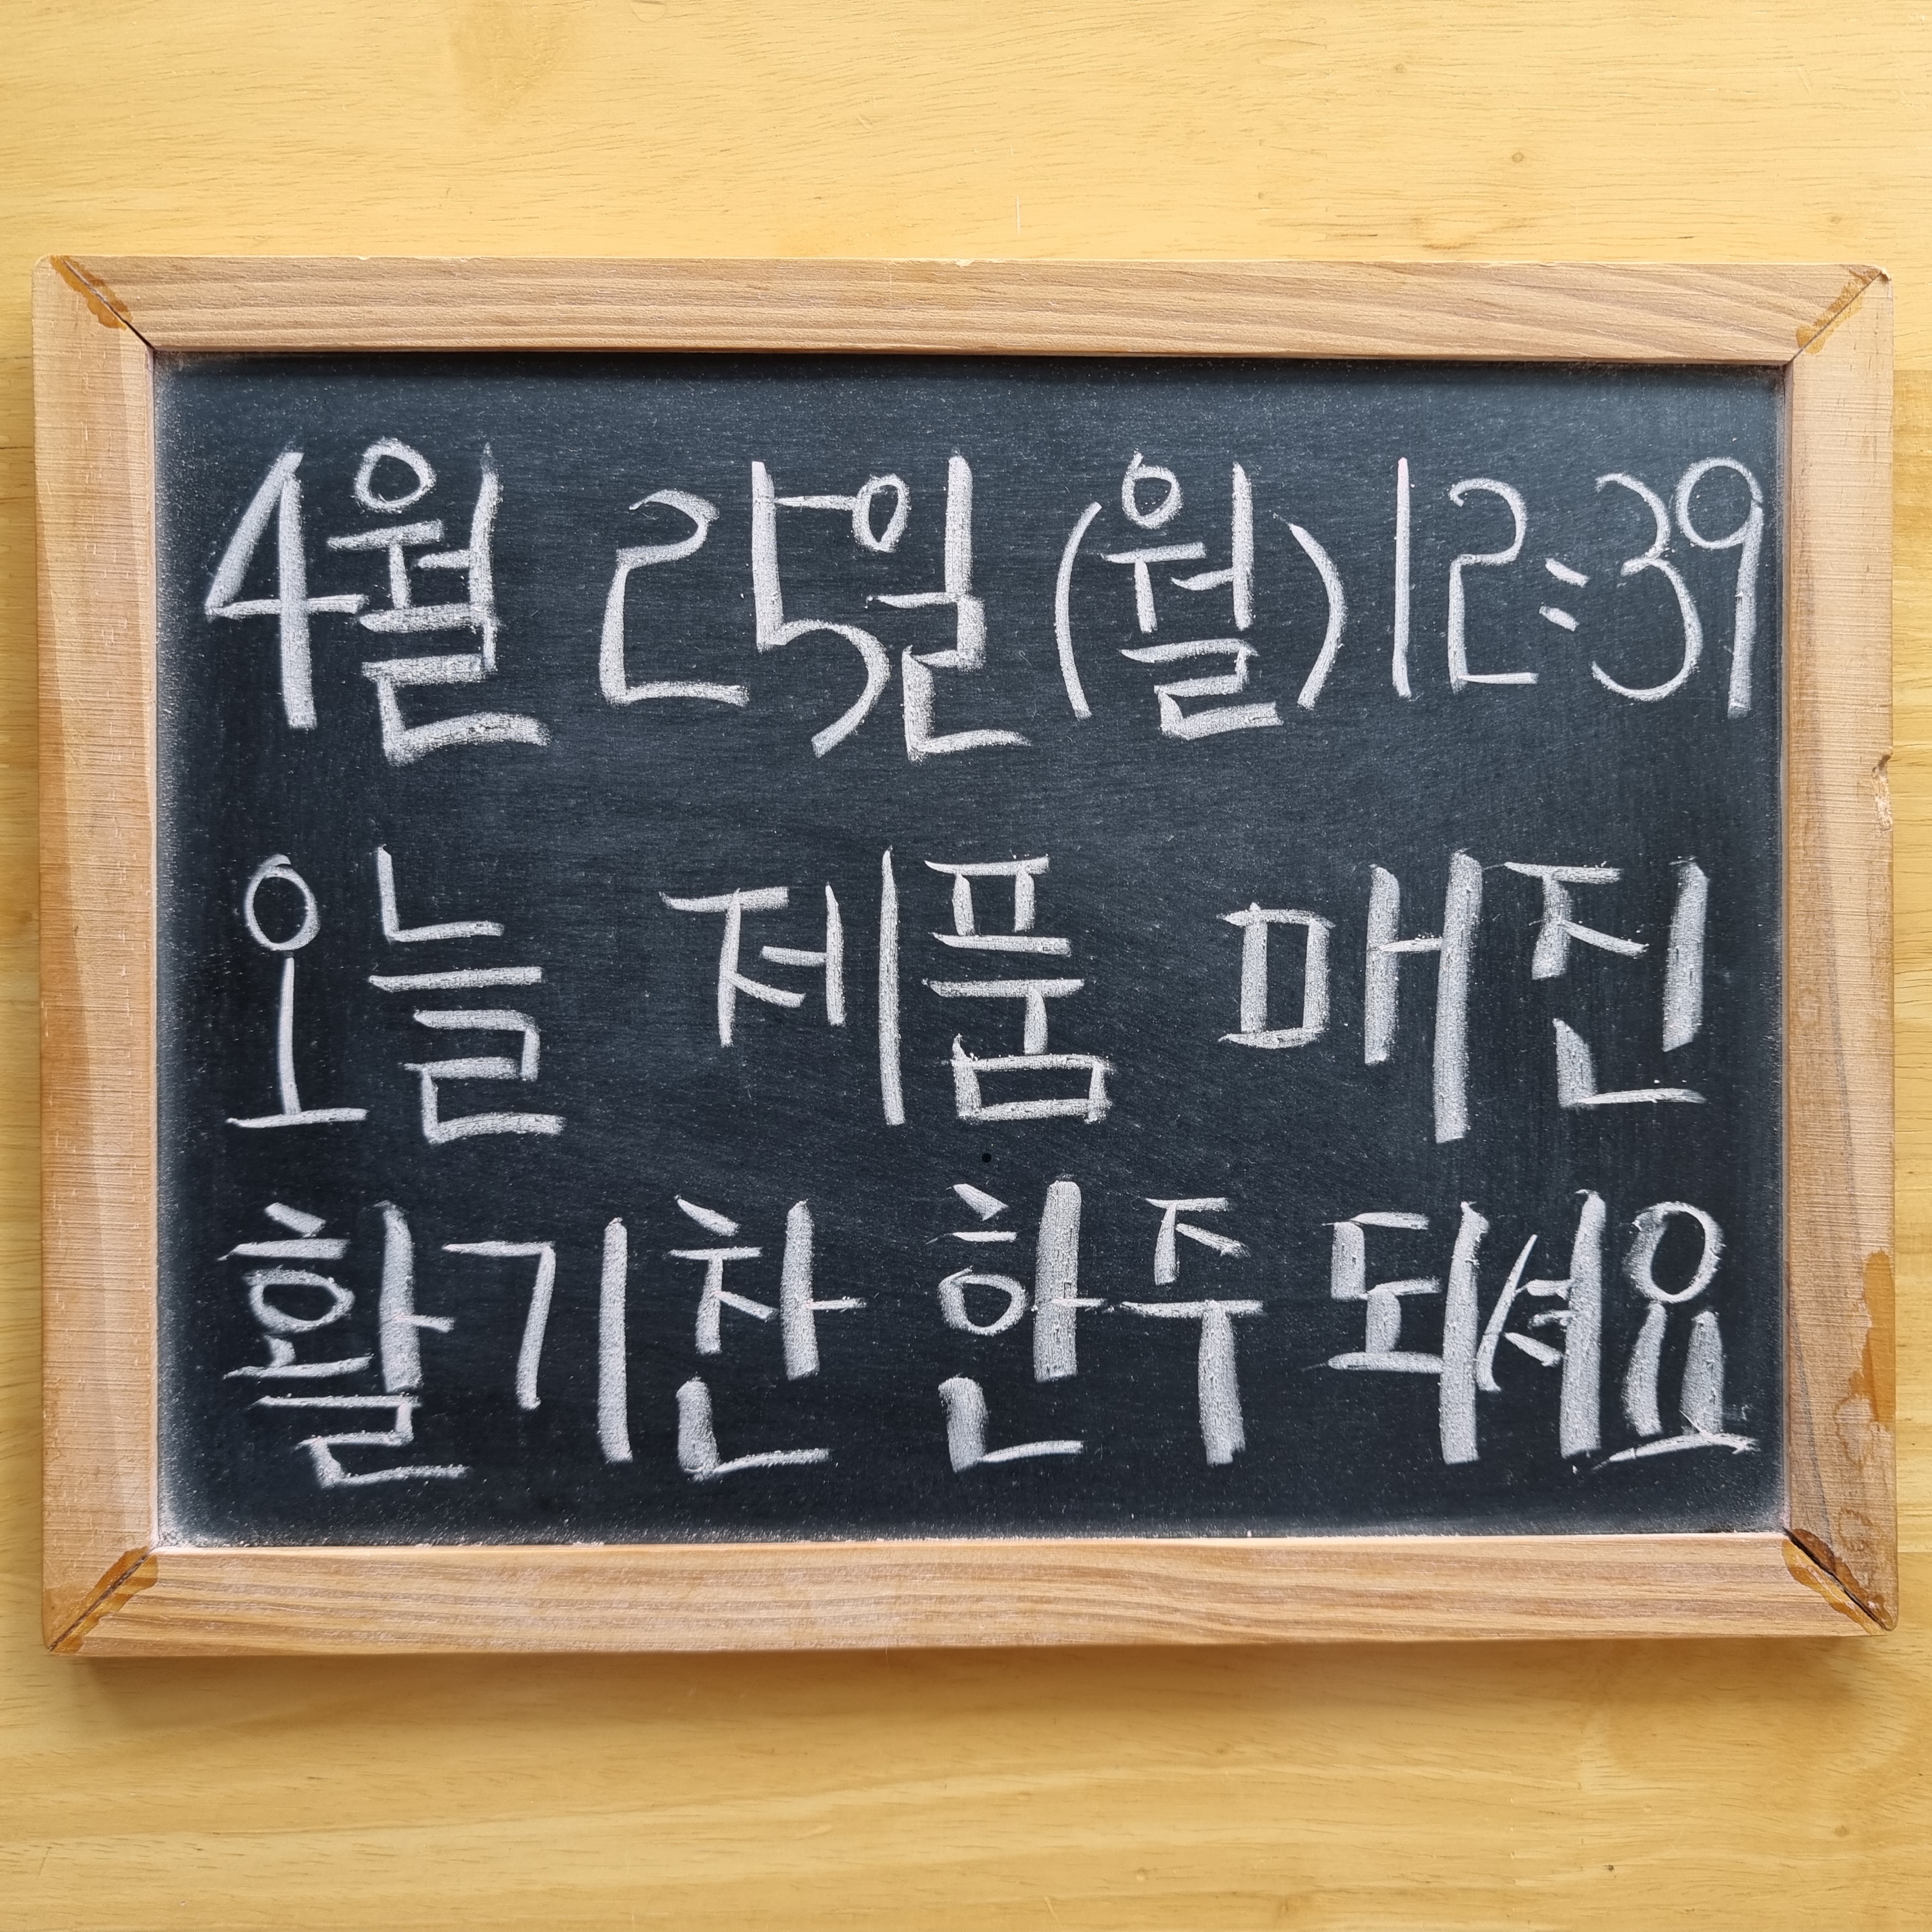 4월 25일 (월) 12:39
오늘 제품 매진
활기찬 한주 되셔요